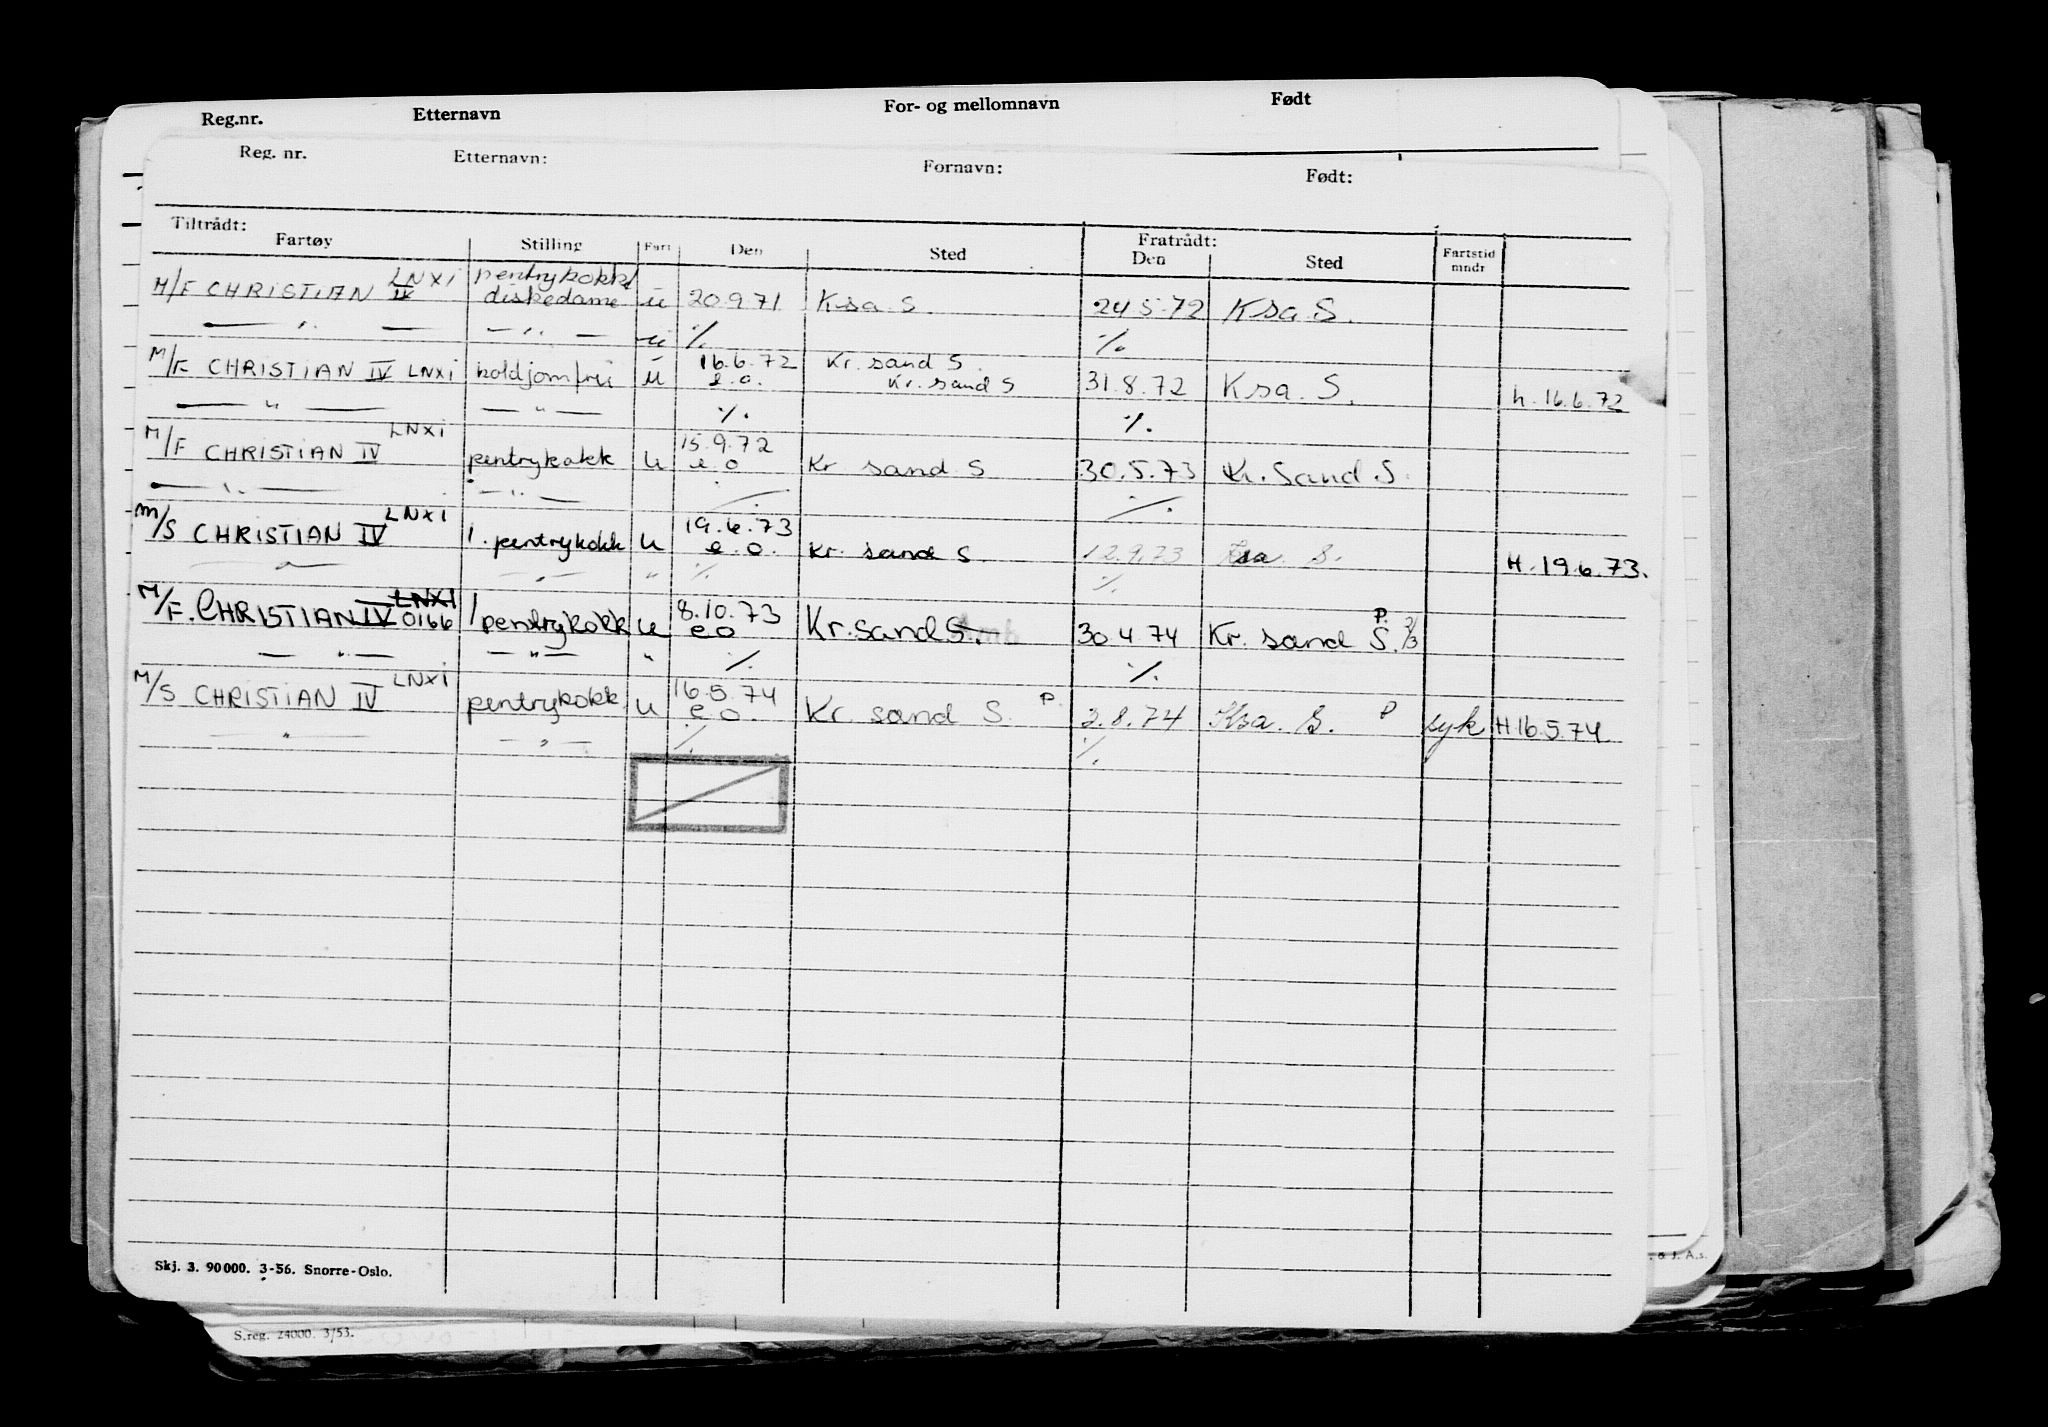 Reg.nr. Etternavn For- og mellomnavn Født
Reg. nr. Etternavn: Fornavn: Født:
Tiltrådt: Fratrådt:
Fartøy Stilling Fart Den Sted Den Sted Fartstid mndr
LNXI pentrykokk/
M/F CHRISTIAN IV diskedame u 20.9.71 Ksa. S. 24.5.72 Ksa. S.
— " — — " — u ·/. ·/.
16.6.72 Kr. sand S.
M/F CHRISTIAN IV LNXI koldjomfrui u e.o. Kr. sand S 31.8.72 Ksa. S. h. 16.6.72
— " — — " — ·/. ·/.
LNXI 15.9.72
M/F CHRISTIAN IV pentrykokk u e.o Kr sand S 30.5.73 Kr. Sand S.
— " — — " — ·/. ·/.
LNXI 19.6.73
M/S CHRISTIAN IV 1. pentrykokk u e.o. Kr. sand S. 12.9.73 Ksa. S. H. 19.6.73.
— " — — " — " ·/. ·/.
LNXI 8.10.73 P.
M/F. CHRISTIAN IV 0166 1 pentrykokk u e o Kr. sand S. 30.4.74 Kr. sand S. 2/3
— " — — " — " ·/. ·/.
LNXI 16.5.74
M/S CHRISTIAN IV pentrykokk u e o. Kr. sand S. P. 2.8.74 Ksa. S. P syk H 16.5.74
— " — — " — ·/. ·/.
Skj. 3. 90000. 3-56. Snorre-Oslo.
S.reg. 24000. 3/53.